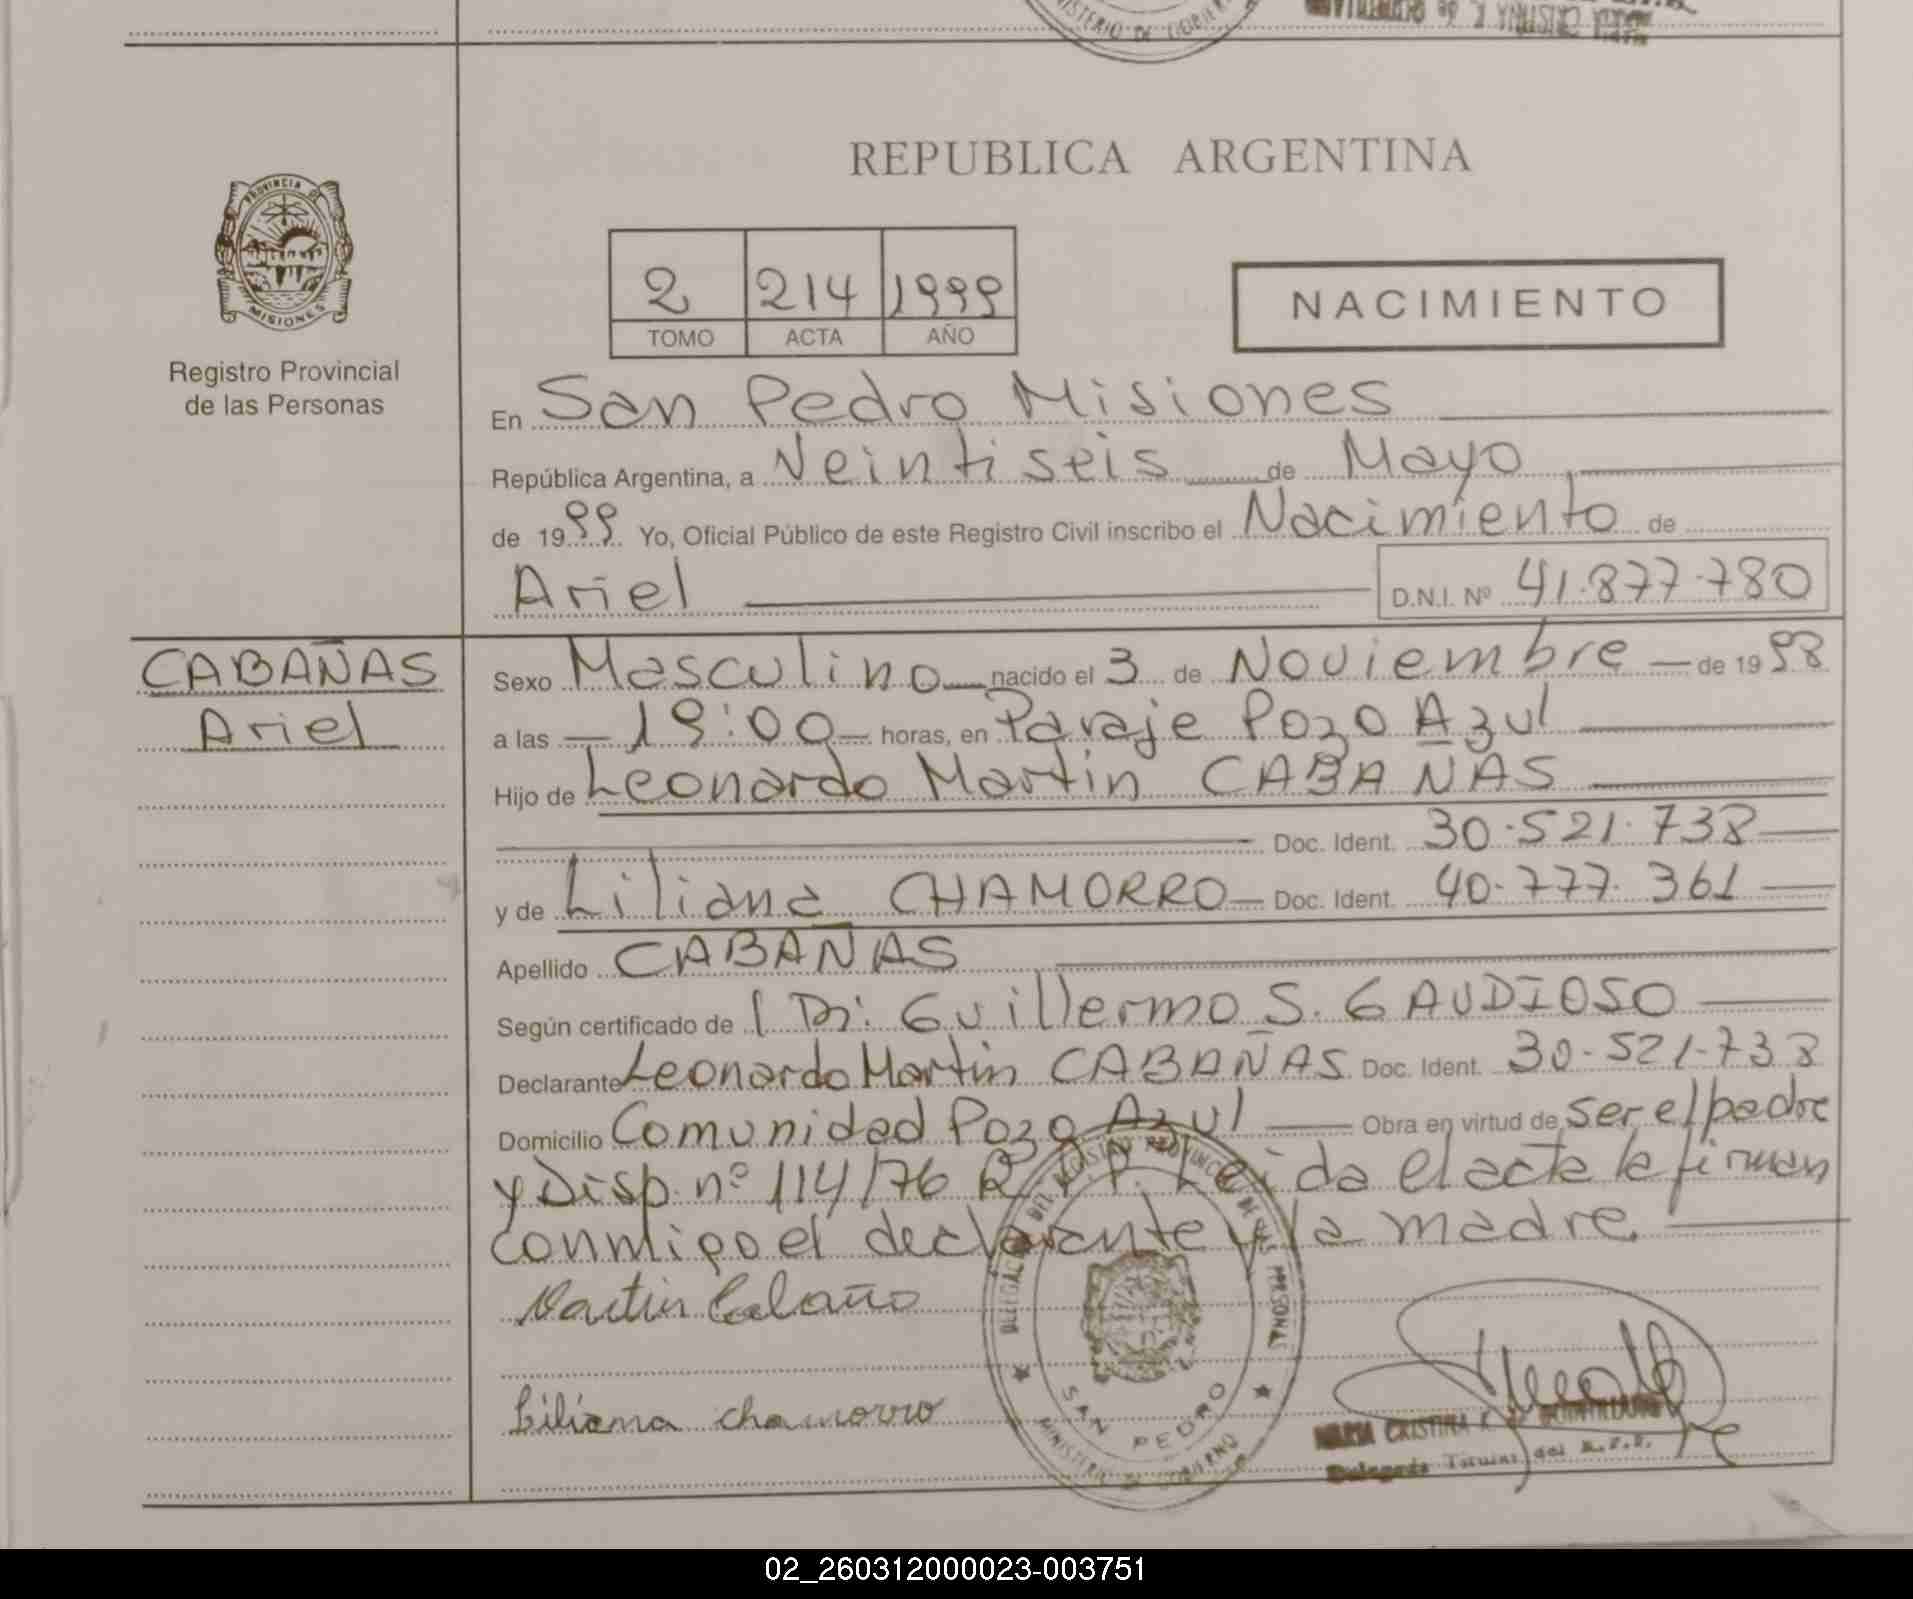 MINISTERIO DE GOBIERNO
REPUBLICA ARGENTINA
PROVINCIA DE
MISIONES
Registro Provincial
de las Personas
2 214 1999
TOMO ACTA AÑO
NACIMIENTO
En San Pedro Misiones
República Argentina, a Veintiseis de Mayo
de 1999 Yo, Oficial Público de este Registro Civil inscribo el Nacimiento de
Ariel D.N.I. Nº 41.877.780
CABAÑAS
Ariel
Sexo Masculino nacido el 3 de Noviembre de 1998
a las 19:00 horas, en Paraje Pozo Azul
Hijo de Leonardo Martin CABAÑAS
Doc. Ident. 30.521.738
y de Liliana CHAMORRO Doc. Ident. 40.777.361
Apellido CABAÑAS
Según certificado de l Dr: Guillermo S. GAUDIOSO
Declarante Leonardo Martin CABAÑAS Doc. Ident. 30.521.738
Domicilio Comunidad Pozo Azul Obra en virtud de ser el padre
y Disp. nº 114/76 R.P.P. Leida el acta la firman
conmigo el declarante y la madre.
Martin Cabaña
Liliana chamorro
DELEGAC DEL REGISTRO PROVINCIAL DE LAS PERSONAS
SAN PEDRO
MINISTERIO DE GOBIERNO
MARIA CRISTINA K. DE
Delegada Titular del R.P.P.
02_260312000023-003751